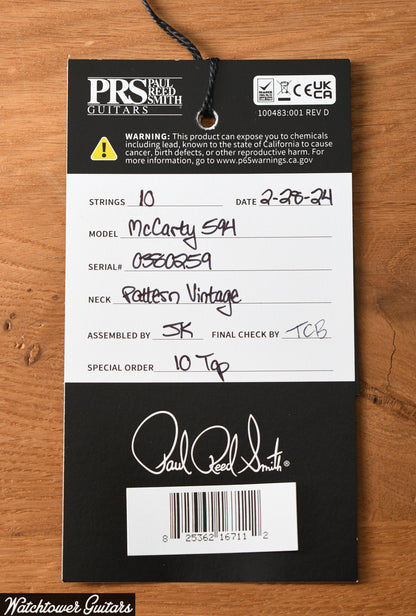 PRS PAUL REED SMITH
GUITARS
CE UK CA
100483:001 REV D
WARNING: This product can expose you to chemicals
including lead, known to the state of California to cause
cancer, birth defects, or other reproductive harm. For
more information go to www.p65warnings.ca.gov
STRINGS 10 DATE 2-28-24
MODEL McCarty 594
SERIAL# 0380259
NECK Pattern Vintage
ASSEMBLED BY JK FINAL CHECK BY TCB
SPECIAL ORDER 10 Top
Paul Reed Smith®
8 25362 16711 2
Watchtower Guitars